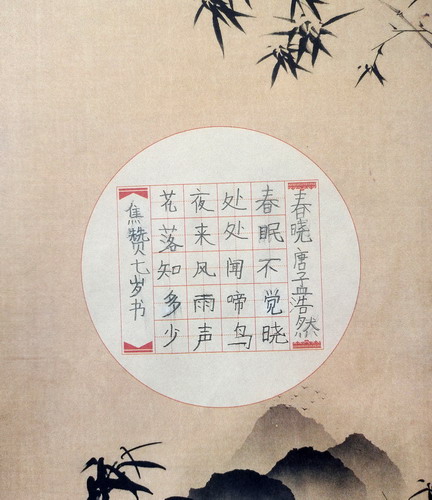 春晓 唐 孟浩然
春眠不觉晓
处处闻啼鸟
夜来风雨声
花落知多少
焦赞七岁书